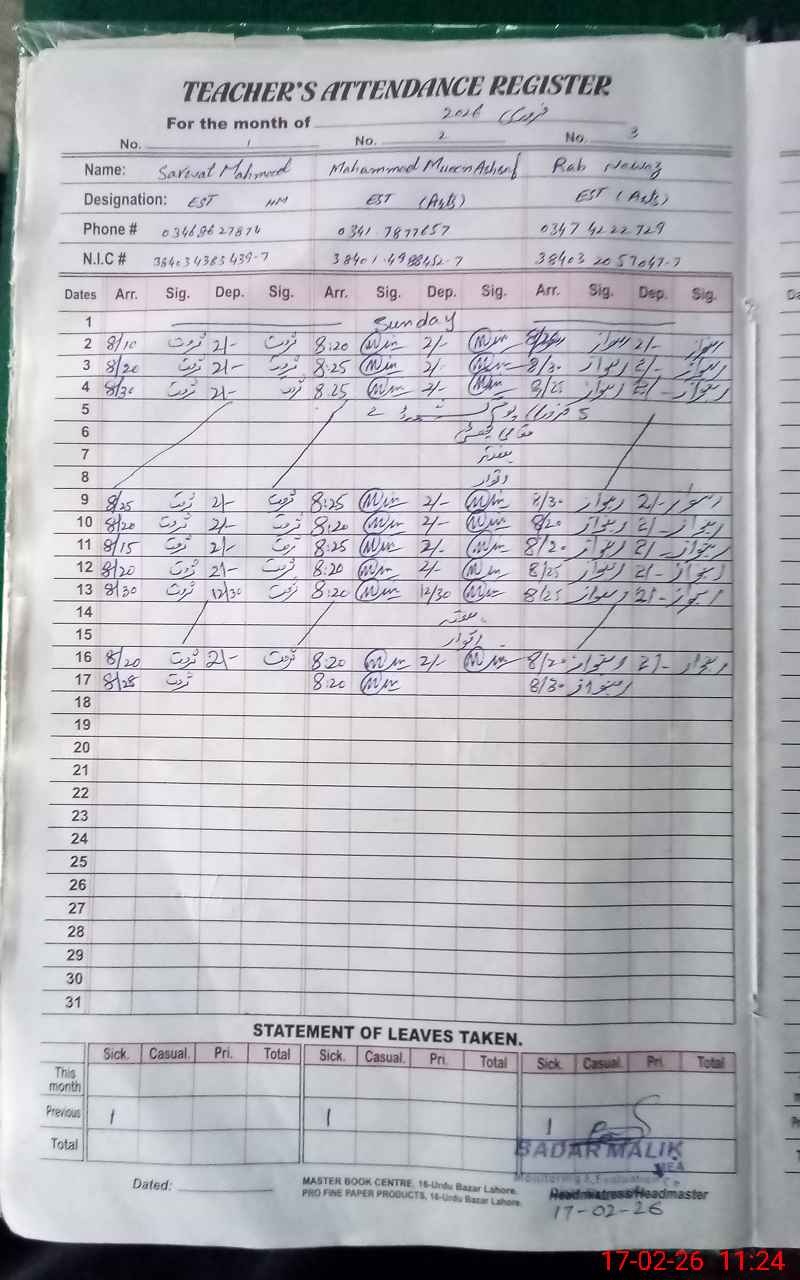 TEACHER'S ATTENDANCE REGISTER
For the month of فروری 2026
No. 1 No. 2 No. 3
Name: Sarwat Mahmood Mohammad Mueen Ashraf Rab Nawaz
Designation: EST HM EST (Arts) EST (Arts)
Phone # 03469627874 0341 7877657 0347 4222729
N.I.C # 38403 4365439-7 38401-4988452-7 38403 2057047-7
Dates Arr. Sig. Dep. Sig. Arr. Sig. Dep. Sig. Arr. Sig. Dep. Sig.
1 Sunday
2 8/10 ثروت 2/- ثروت 8:20 2/- ربنواز 2/- ربنواز
3 8/20 ثروت 2/- ثروت 8:25 2/- 8/30 ربنواز 2/- ربنواز
4 8/30 ثروت 2/- ثروت 8:25 2/- 8/25 ربنواز 2/- ربنواز
5 5 فروری یوم
6 مقامی چھٹی
7 ہفتہ
8 اتوار
9 8/25 ثروت 2/- ثروت 8:25 2/- 8/30 ربنواز 2/- ربنواز
10 8/20 ثروت 2/- ثروت 8:20 2/- 8/20 ربنواز 2/- ربنواز
11 8/15 ثروت 2/- ثروت 8:25 2/- 8/20 ربنواز 2/- ربنواز
12 8/20 ثروت 2/- ثروت 8:20 2/- 8/25 ربنواز 2/- ربنواز
13 8/30 ثروت 12/30 ثروت 8:20 12/30 8/25 ربنواز 2/- ربنواز
14 ہفتہ
15 اتوار
16 8/20 ثروت 2/- ثروت 8:20 2/- 8/20 ربنواز 2/- ربنواز
17 8/25 ثروت 8:20 8/30 ربنواز
18
19
20
21
22
23
24
25
26
27
28
29
30
31
STATEMENT OF LEAVES TAKEN.
Sick. Casual. Pri. Total Sick. Casual. Pri. Total Sick. Casual. Pri. Total
This month
Previous 1 1 1
Total
BADAR MALIK
MEA
Monitoring & Evaluation
Dated: MASTER BOOK CENTRE, 16-Urdu Bazar Lahore.
PRO FINE PAPER PRODUCTS, 16-Urdu Bazar Lahore.
Headmistress/Headmaster
17-02-26
17-02-26 11:24